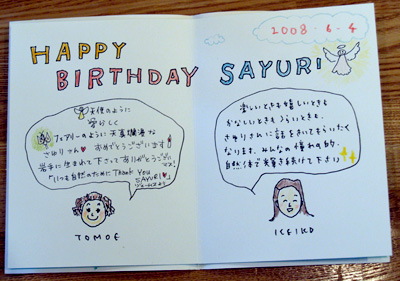 2008.6.4
HAPPY
BIRTHDAY SAYURI
天使のように
愛らしく
フェアリーのように天真爛漫な
さゆりさん おめでとうございます
岩手に生まれて下さってありがとうござい
ます
いつも自然のために Thank you
SAYURI
TOMOE
楽しいときも嬉しいときも
かなしいときもつらいときも、
さゆりさんに話をきいてもらいたく
なります。みんなの憧れの的。
自然体で笑顔を続けて下さい
KEIKO